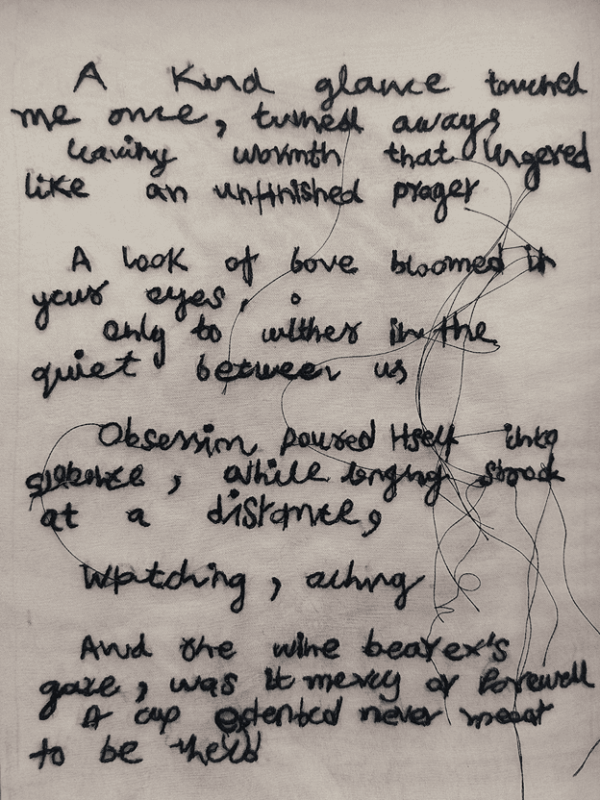 A Kind glance touched
me once, turned away,
leaving warmth that lingered
like an unfinished prayer
A look of love bloomed in
your eyes,
only to wither in the
quiet between us
Obsession poured itself into
silence, while longing stood
at a distance,
Watching, aching
And the wine bearer's
gaze, was it mercy or farewell
A cup extended never meant
to be held